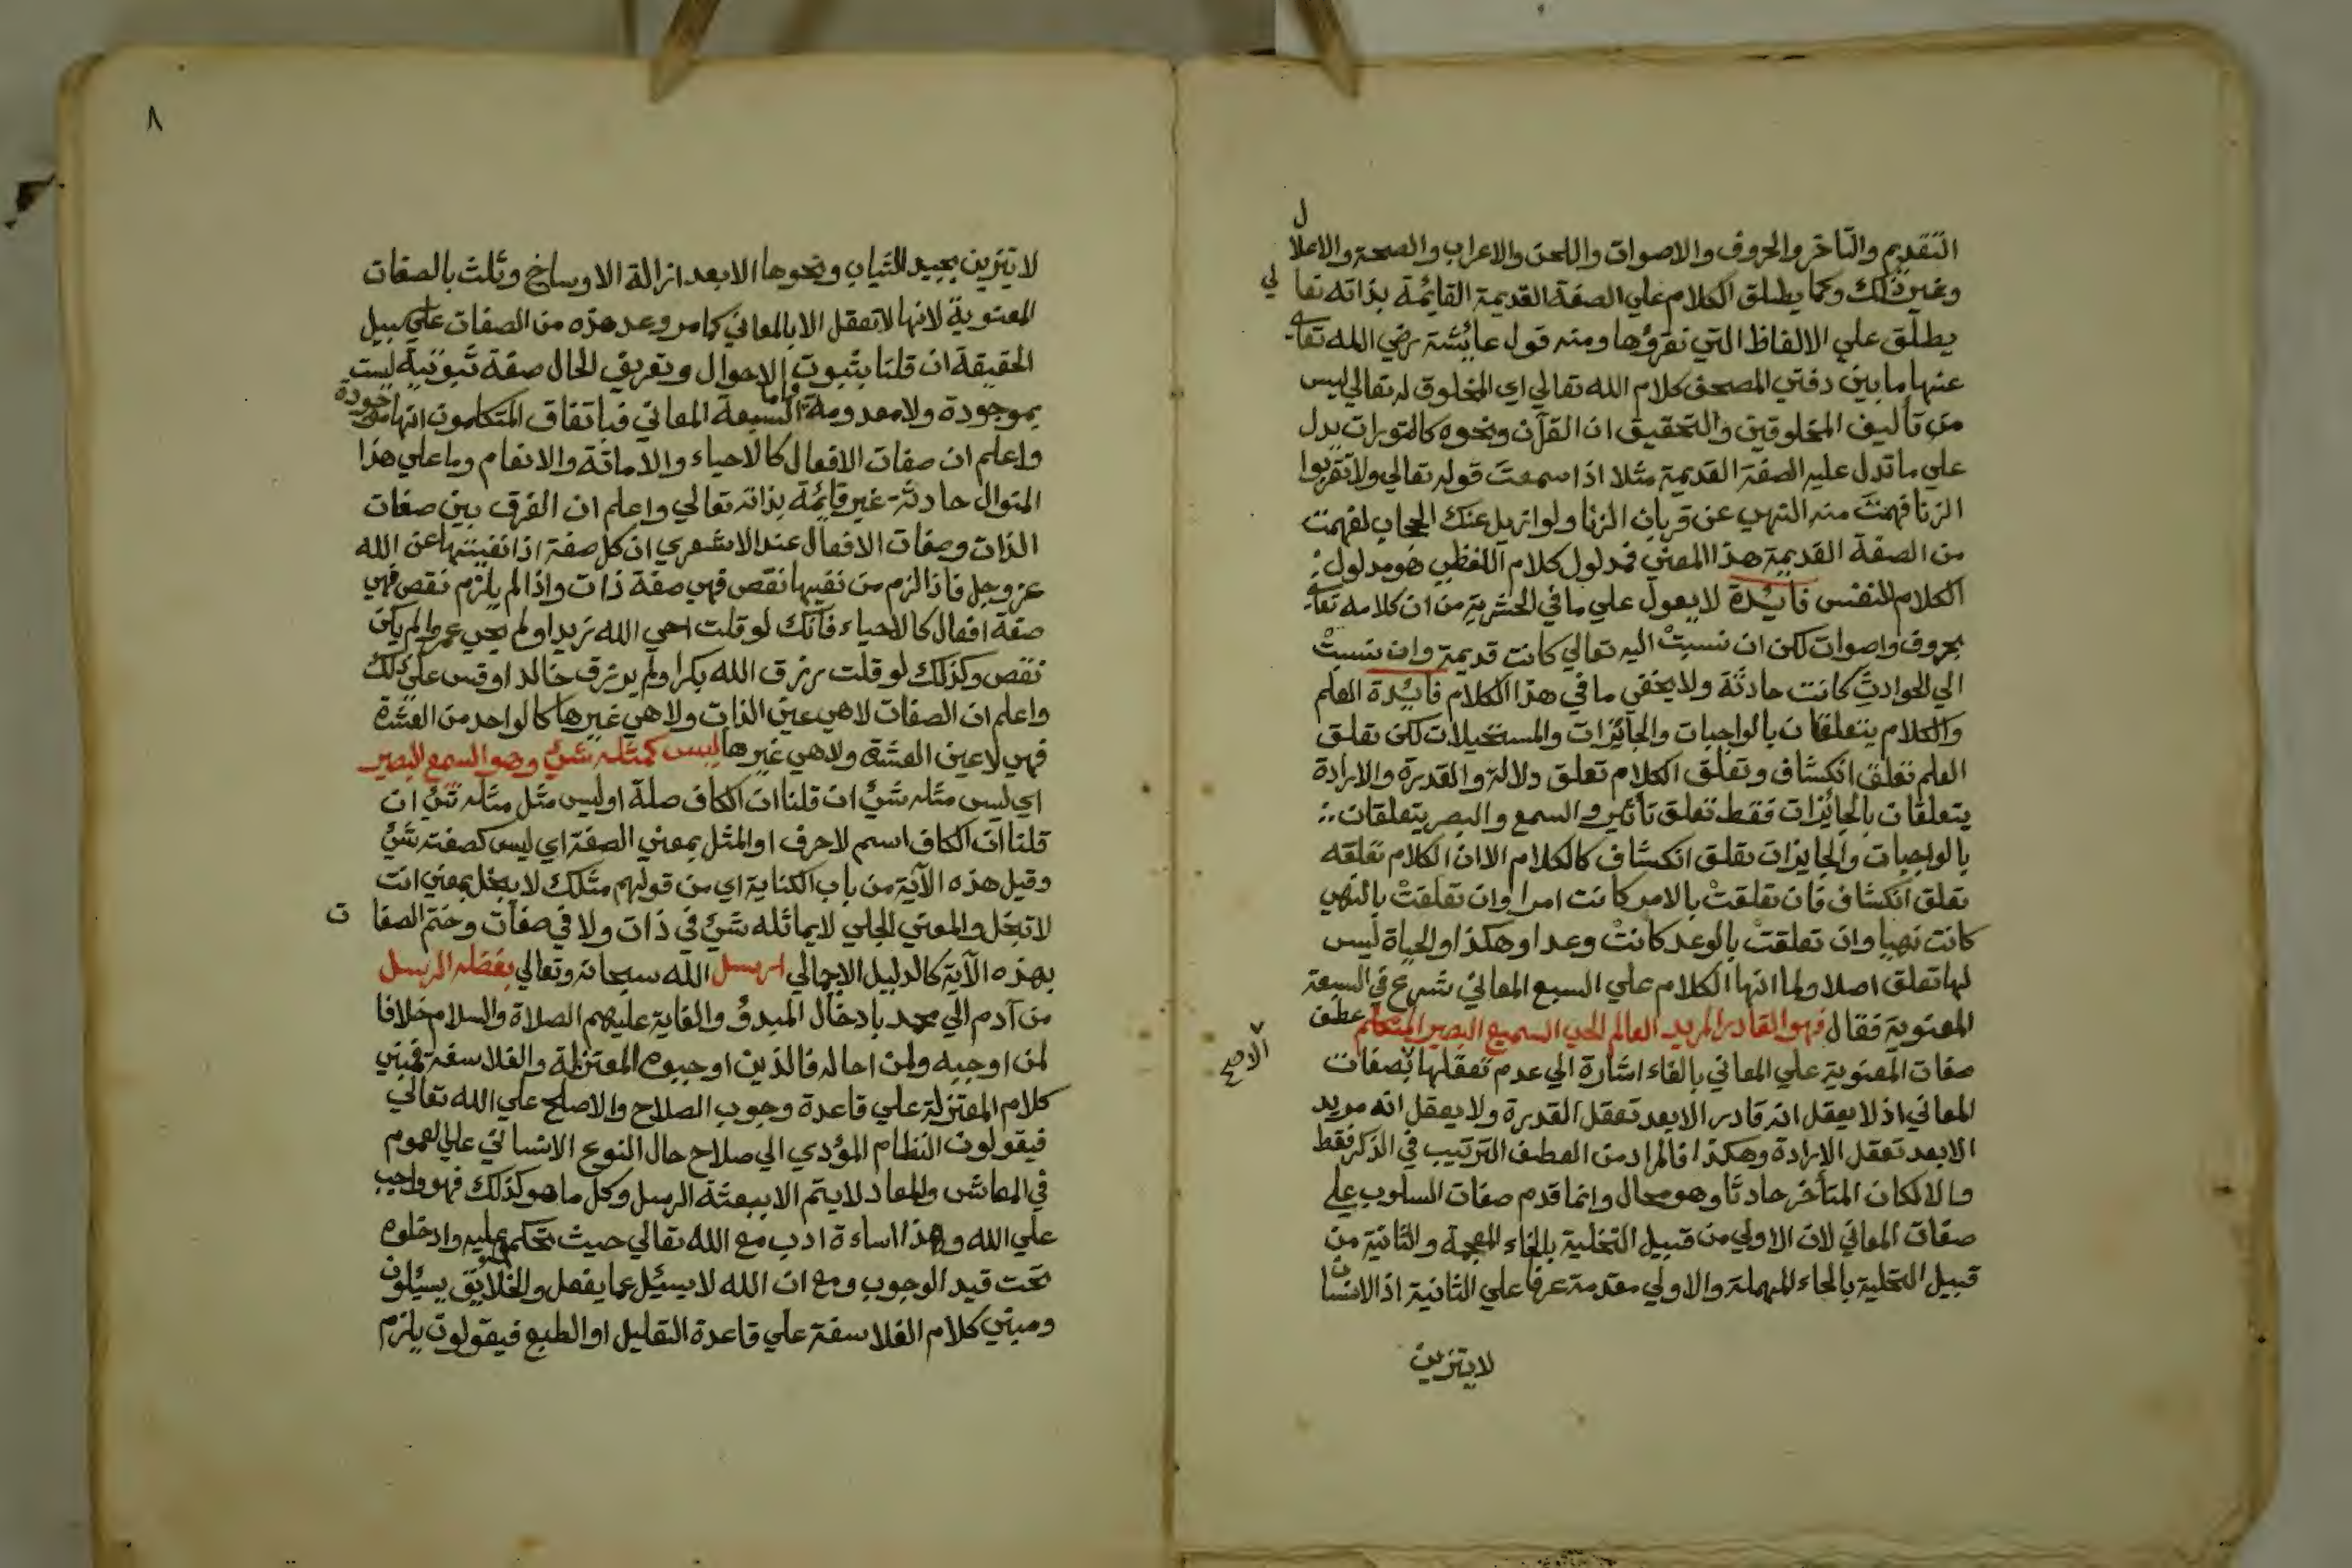 التقديم والتاخر والحروف والاصوات واللحن والاعراب والصحة والاعلال
وغير ذلك وكما يطلق الكلام علي الصفة القديمة القايمة بذاته تعالي
يطلق علي الالفاظ التي نقرؤها ومنه قول عايشة رضي الله تعا
عنها ما بين دفتي المصحف كلام الله تعالي اي المخلوق له تعالي ليس
من تأليف المخلوقين والتحقيق ان القرآن ونحوه كالتورات يدل
علي ما تدل عليه الصفة القديمة مثلا اذا سمعت قوله تعالي ولا تقربوا
الزنا فهمت منه النهي عن قربان الزنا ولو ازيل عنك الحجاب لفهمت
من الصفة القديمة هذا المعني فمدلول كلام اللفظي هو مدلول
الكلام النفس فايدة لا يعول علي ما في الحشرية من ان كلامه تعا
بحروف واصوات لكن ان نسبت اليه تعالي كانت قديمة وان نسبت
الي الحوادث كانت حادثة ولا يخفي ما في هذا الكلام فايدة العلم
والكلام يتعلقان بالواجبات والجائزات والمستحيلات لكن تعلق
العلم تعلق انكشاف وتعلق الكلام تعلق دلالة والقدرة والارادة
يتعلقان بالجائزات فقط تعلق تأثير والسمع والبصر يتعلقان
بالواجبات والجايزات تعلق انكشاف كالكلام الا ان الكلام تعلقه
تعلق انكشاف فان تعلقت بالامر كانت امرا وان تعلقت بالنهي
كانت نهيا وان تعلقت بالوعد كانت وعدا وهكذا والحياة ليس
لها تعلق اصلا ولما انها الكلام علي السبع المعاني شرع في السبعة
المعنوية فقال فهو القادر المريد العالم الحي السميع البصير المتكلم عطف
صفات المعنوية علي المعاني بالفاء اشارة الي عدم تعقلها بصفات
المعاني اذ لا يعقل انه قادر الا بعد تعقل القدرة ولا يعقل انه مريد
الا بعد تعقل الارادة وهكذا فالمراد من العطف الترتيب في الذكر فقط
والا لكان المتأخر حادثا وهو محال وانما قدم صفات السلوب علي
صفات المعاني لان الاولي من قبيل التخلية بالخاء المعجمة والثانية من
قبيل التحلية بالحاء المهملة والاولي مقدمة عرفا علي الثانية اذ الانسان
لا يتزين
٨
لا يتزين بجيد الثياب ونحوها الا بعد ازالة الاوساخ وثلث بالصفات
المعنوية لانها لا تعقل الا بالمعاني كما مر وعد هذه من الصفات علي سبيل
الحقيقة ان قلنا بثبوت الاحوال وتعريف الحال صفة ثبوتية ليست
بموجودة ولا معدومة واما السبعة المعاني فباتفاق المتكلمون انها موجودة
واعلم ان صفات الافعال كالاحياء والاماتة والانعام وما علي هذا
المنوال حادثة غير قايمة بذاته تعالي واعلم ان الفرق بين صفات
الذات وصفات الافعال عند الاشعري ان كل صفة اذا نفيتها عن الله
عز وجل فاذا لزم من نفيها نقص فهي صفة ذات واذا لم يلزم نقص فهي
صفة افعال كالاحياء فانك لو قلت احي الله زيدا ولم يحي عمروا لم يكن
نقص وكذلك لو قلت رزق الله بكرا ولم يرزق خالدا وقس علي ذلك
واعلم ان الصفات لا هي عين الذات ولا هي غيرها كالواحد من العشرة
فهي لا عين العشرة ولا هي غيرها ليس كمثله شئ وهو السمع البصير
اي ليس مثله شئ ان قلنا ان الكاف صلة او ليس مثل مثله شئ ان
قلنا ان الكاف اسم لا حرف او المثل بمعني الصفة اي ليس كصفته شئ
وقيل هذه الآية من باب الكناية اي من قولهم مثلك لا يبخل بمعني انت
لا تبخل والمعني الجلي لا يماثله شئ في ذات ولا في صفات وختم الصفات
بهذه الآية كالدليل الاجمالي ارسل الله سبحانه وتعالي بفضله الرسل
من آدم الي محمد بادخال المبدؤ والغاية عليهم الصلاة والسلام خلافا
لمن اوجبه ولمن احاله فالذين اوجبوه المعتزلة والفلاسفة فمبني
كلام المعتزلة علي قاعدة وجوب الصلاح والاصلح علي الله تعالي
فيقولون النظام المؤدي الي صلاح حال النوع الانساني علي العموم
في المعاش والمعاد لا يتم الا ببعثة الرسل وكل ما هو كذلك فهو واجب
علي الله وهذا اساءة ادب مع الله تعالي حيث تحكموا عليه وادخلوه
تحت قيد الوجوب ومع ان الله لا يسئل عما يفعل والخلايق يسئلون
ومبني كلام الفلاسفة علي قاعدة التعليل او الطبع فيقولون يلزم